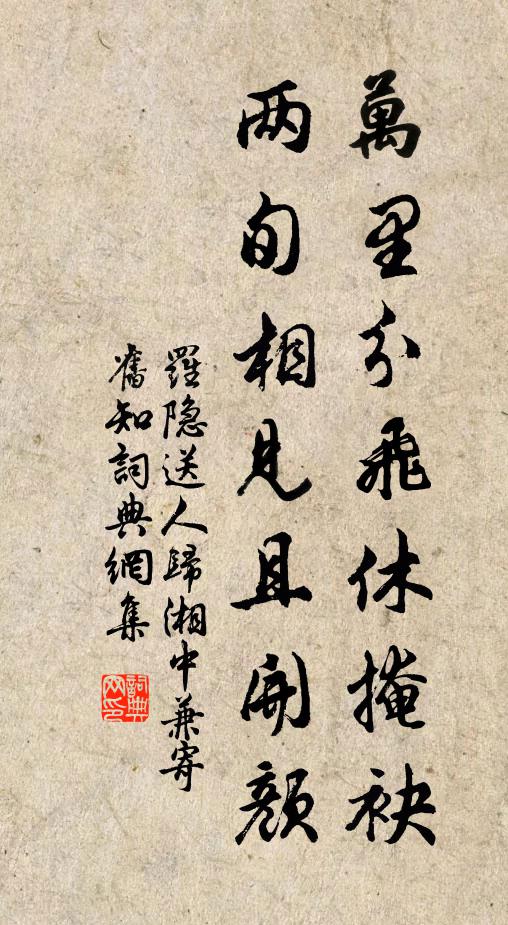 萬里分飛休掩袂
两旬相見且開顔
羅隐送人歸湘中兼寄
舊知詞典網集
詞典网印